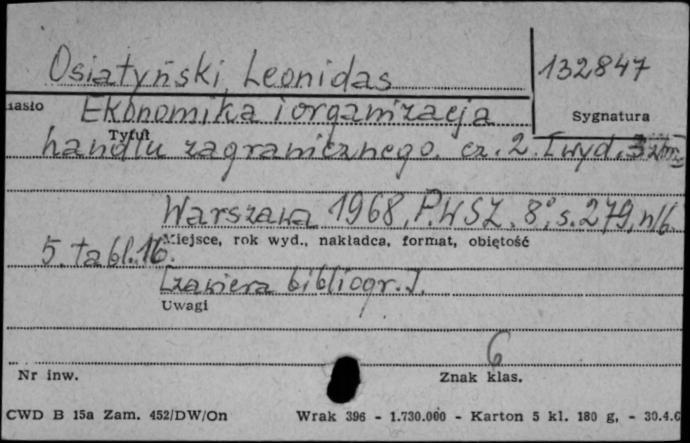 Osiatyński Leonidas
132847
Hasło
Sygnatura
Ekonomika i organizacja
Tytuł
handlu zagranicznego. cz. 2. [wyd. 3 zm.
Warszawa 1968, P.W.S.Z. 8°, s. 279, nlb.
Miejsce, rok wyd., nakładca, format, objętość
5. tabl. 16.
[zawiera bibliogr.].
Uwagi
6
Nr inw.
Znak klas.
CWD B 15a Zam. 452/DW/On Wrak 396 - 1.730.000 - Karton 5 kl. 180 g, - 30.4.6